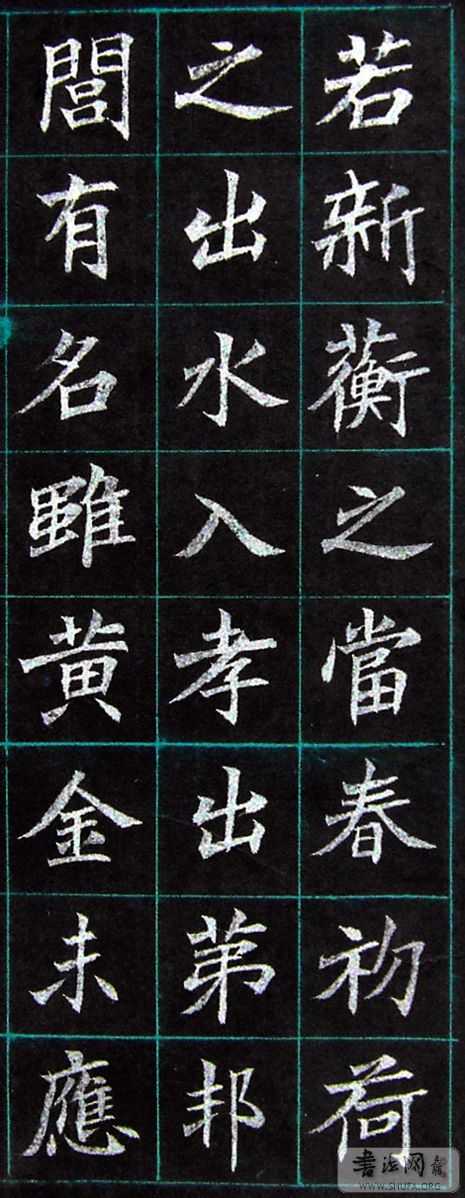 若新蘅之當春初荷
之出水入孝出苐邦
閭有名雖黄金未應
书法网
WWW.SHUFA.ORG